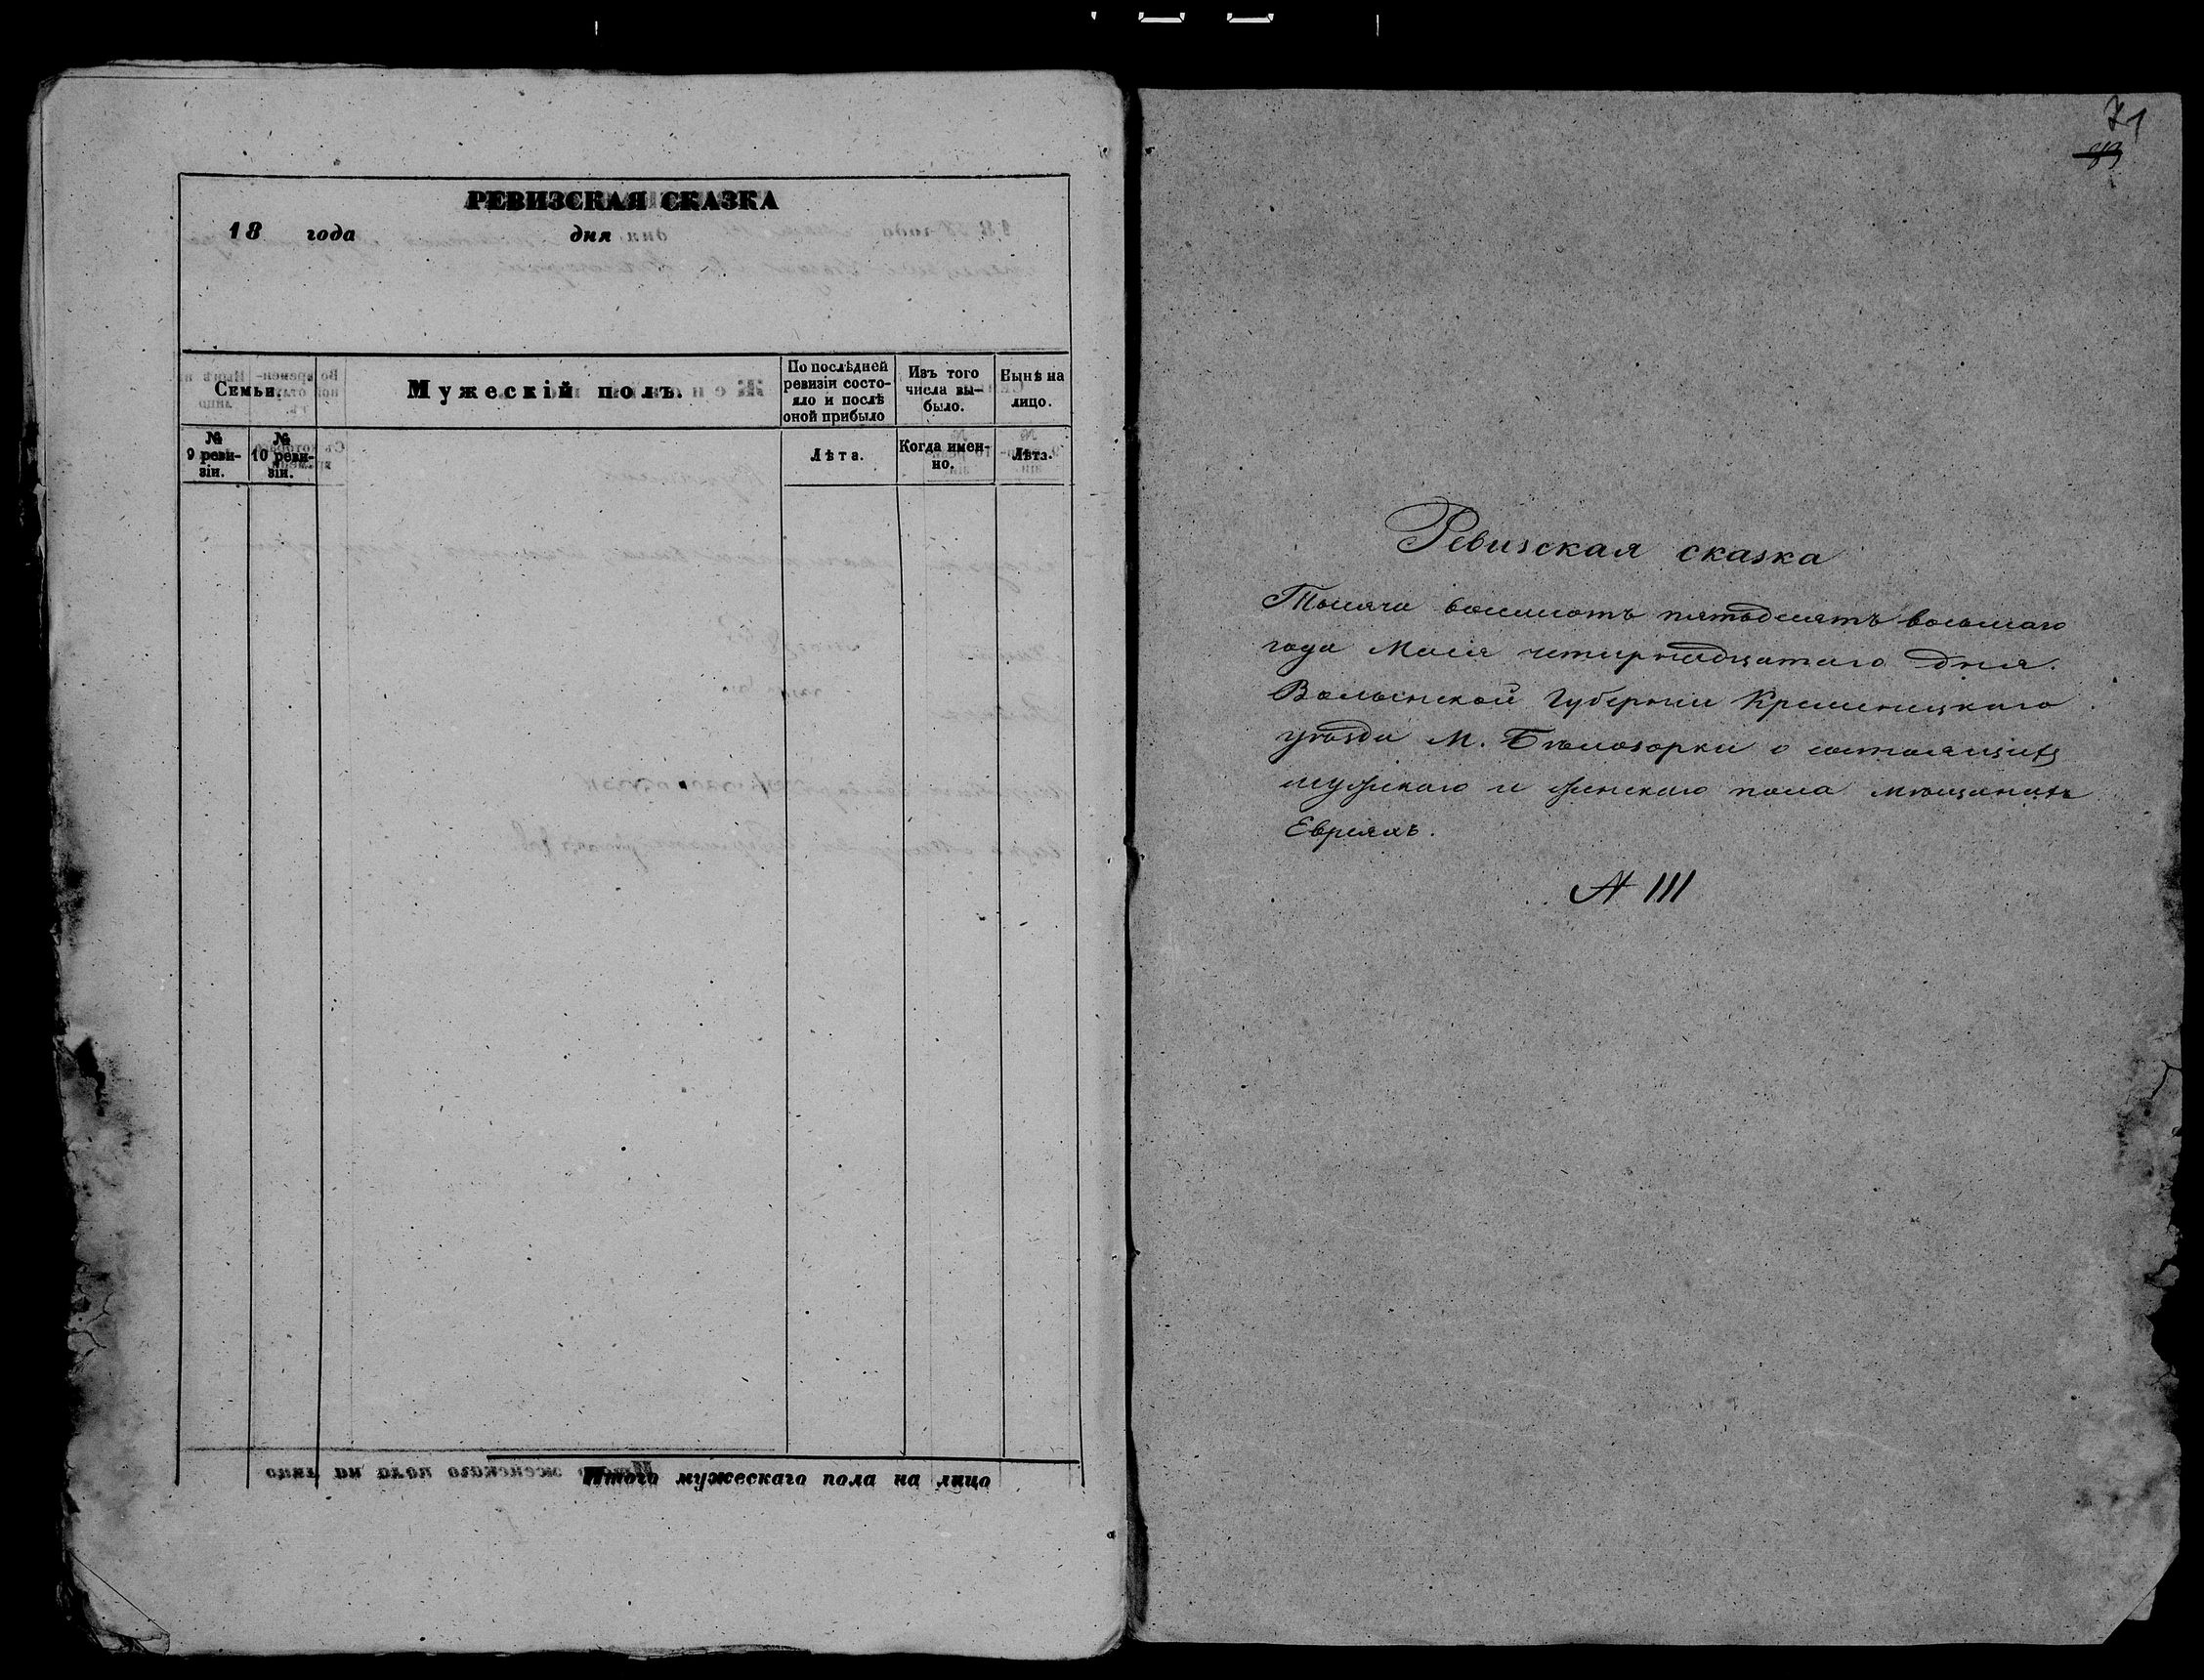 РЕВИЗСКАЯ СКАЗКА
18 года дня
Семьи.
Мужескій полъ.
По послѣдней ревизіи состо-
яло и послѣ
оной прибыло
Изъ того
числа вы-
было.
Нынѣ на
лицо.
№
9 реви-
зіи.
№
10 реви-
зіи.
Лѣта.
Когда имен-
но.
Лѣта.
Итого мужескаго пола на лицо
71
Ревизская сказка
Тысяча восимотъ пятьдесятъ восьмаго
года Маія четирнадцатаго дня.
Волынской Губерніи Кременецкаго
уѣзда М. Бѣлозорки о состоящихъ
мужскаго и женскаго пола мѣщанахъ
Евреяхъ.
№ III